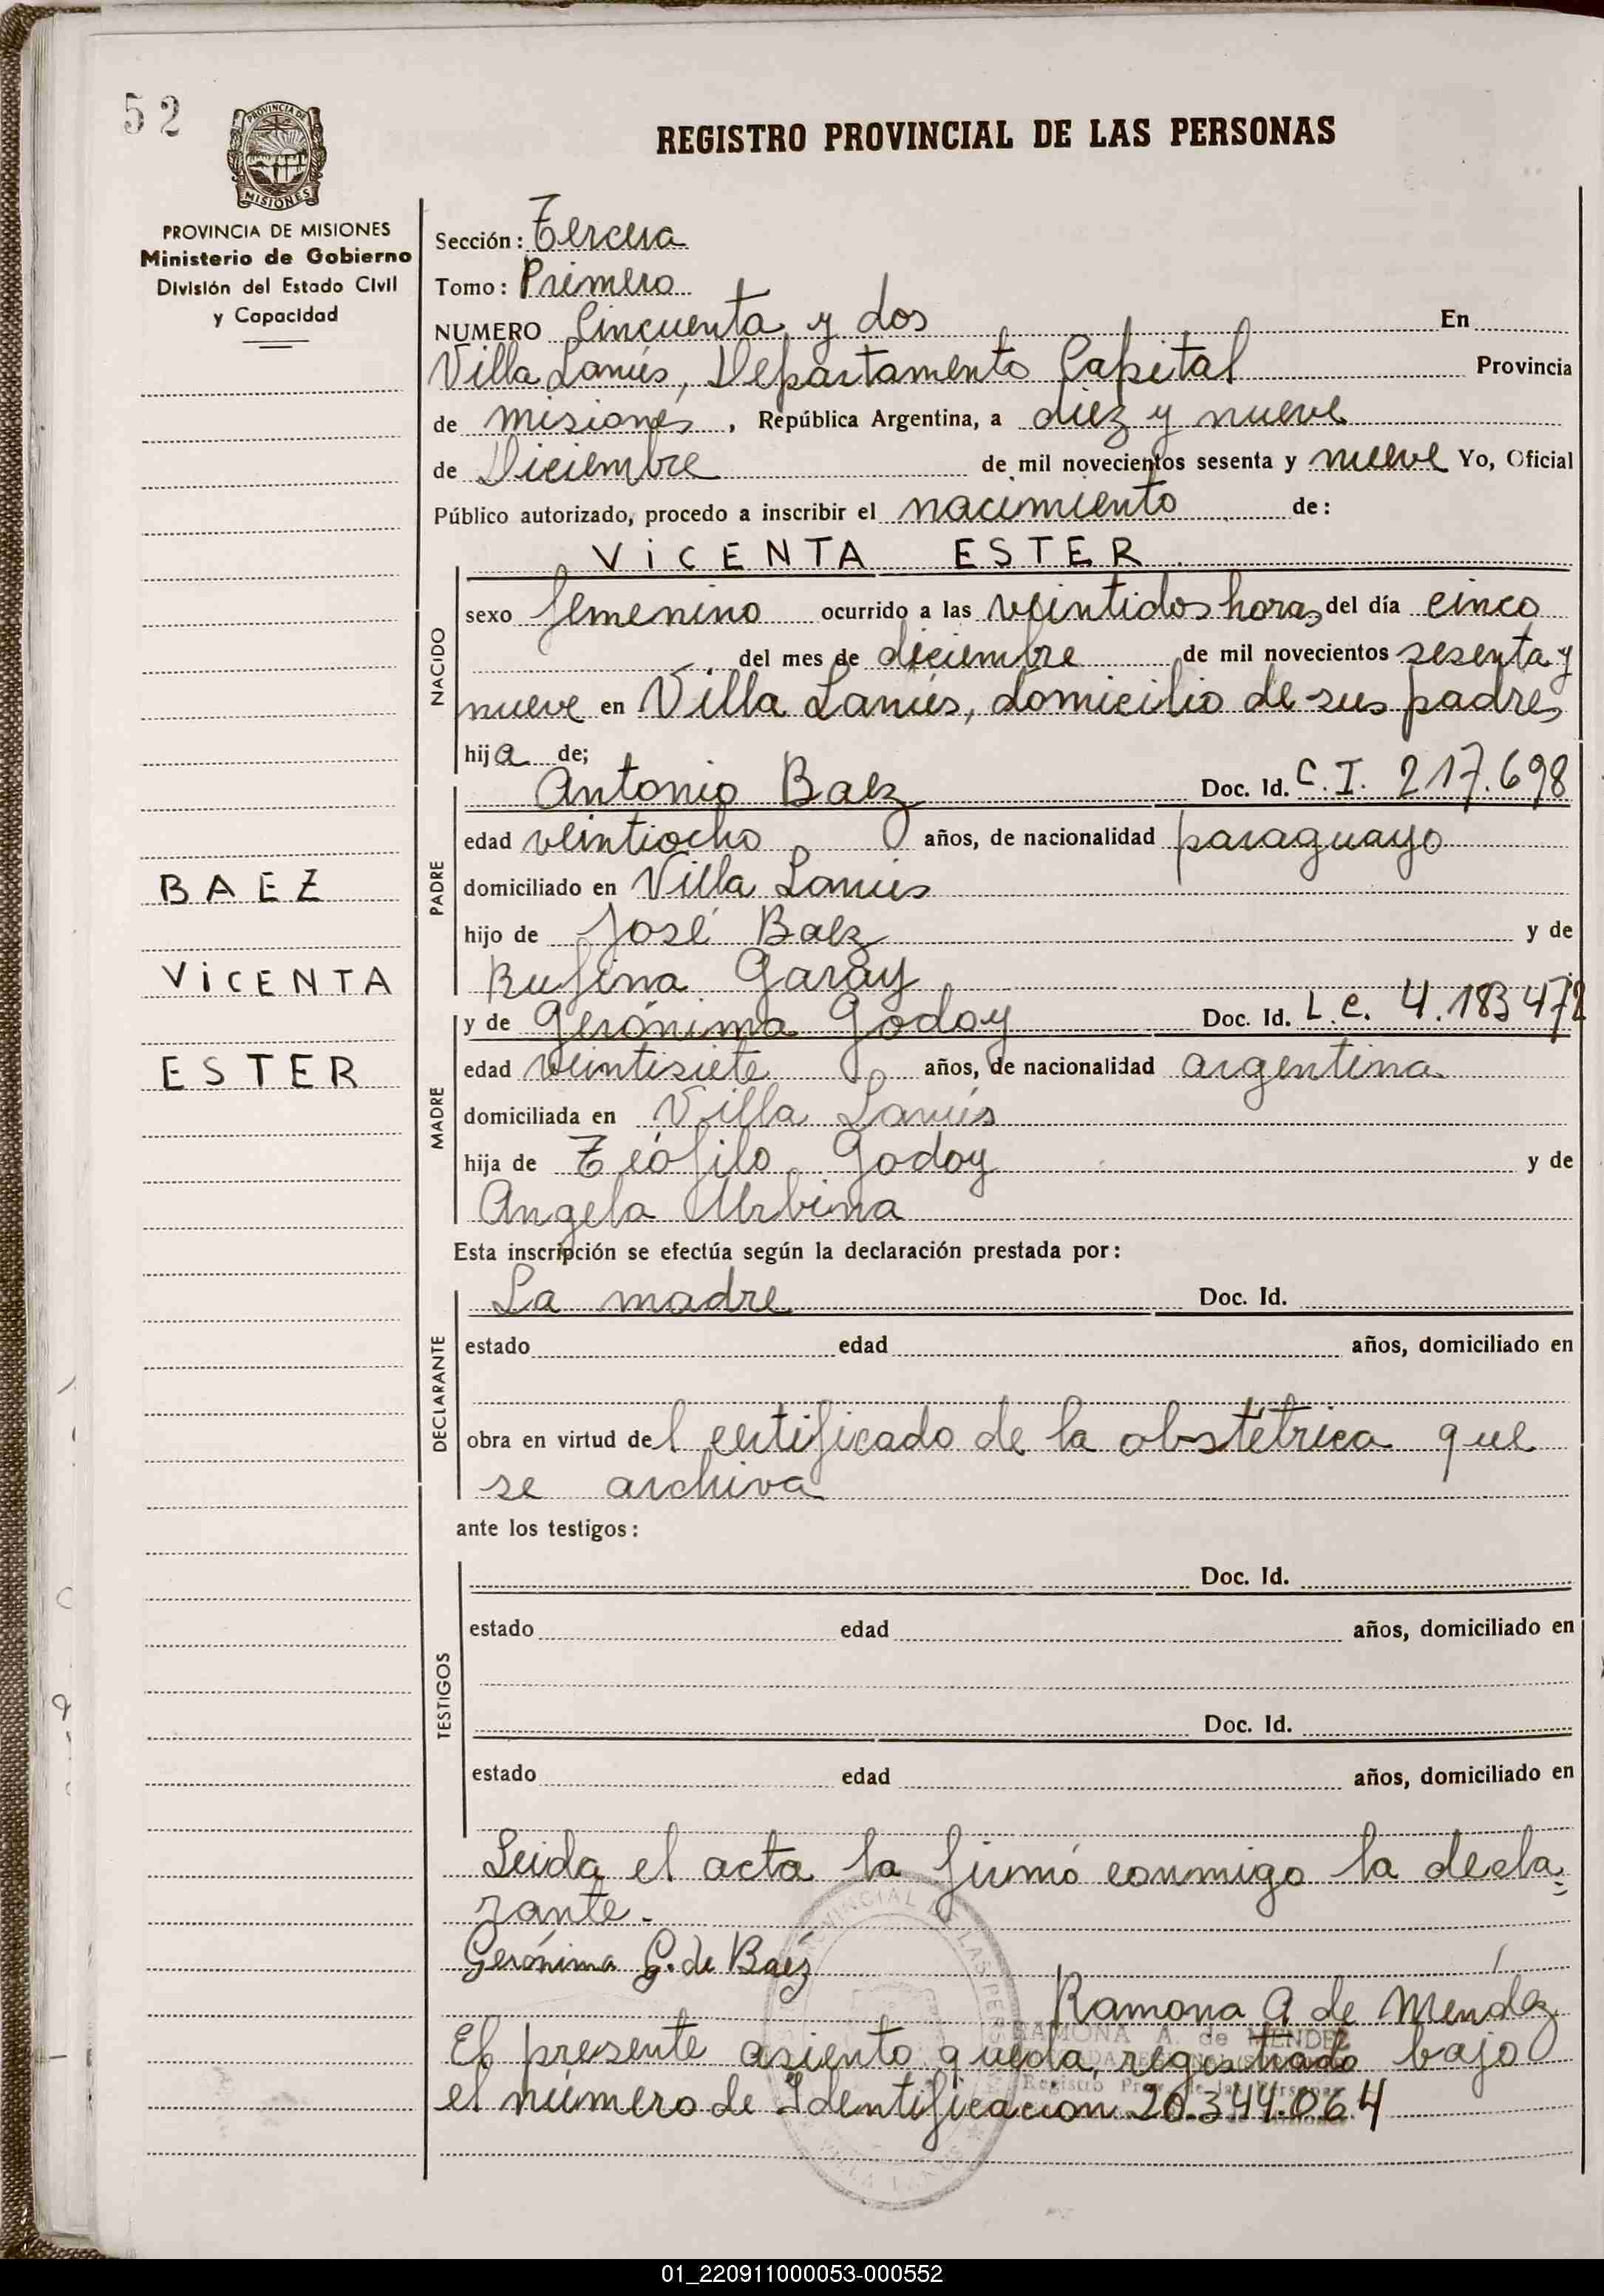 52
PROVINCIA DE
MISIONES
REGISTRO PROVINCIAL DE LAS PERSONAS
PROVINCIA DE MISIONES
Ministerio de Gobierno
División del Estado Civil
y Capacidad
Sección: Tercera
Tomo: Primero
NUMERO Cincuenta y dos En
Villa Lanús, Departamento Capital Provincia
de misiones, República Argentina, a diez y nueve
de Diciembre de mil novecientos sesenta y nueve Yo, Oficial
Público autorizado, procedo a inscribir el nacimiento de:
VICENTA ESTER
NACIDO
sexo femenino ocurrido a las veintidos horas del día cinco
del mes de diciembre de mil novecientos sesenta y
nueve en Villa Lanús, domicilio de sus padres
hija de;
PADRE
Antonio Baez Doc. Id. C.I. 217.698
edad veintiocho años, de nacionalidad paraguayo
BAEZ
domiciliado en Villa Lanús
hijo de José Baez y de
VICENTA
Rufina Garay
MADRE
y de Gerónima Godoy Doc. Id. L.C. 4.183472
ESTER
edad veintisiete años, de nacionalidad argentina
domiciliada en Villa Lanús
hija de Teófilo Godoy y de
Angela Urbina
Esta inscripción se efectúa según la declaración prestada por:
DECLARANTE
La madre Doc. Id.
estado edad años, domiciliado en
obra en virtud del certificado de la obstétrica que
se archiva
ante los testigos:
TESTIGOS
Doc. Id.
estado edad años, domiciliado en
Doc. Id.
estado edad años, domiciliado en
Leida el acta la firmó conmigo la decla=
rante.
Gerónima G. de Baéz
Ramona A de Mendez
RAMONA A. de MENDEZ
El presente asiento queda registrado bajo
el número de Identificacion 20.344.064
01_220911000053-000552